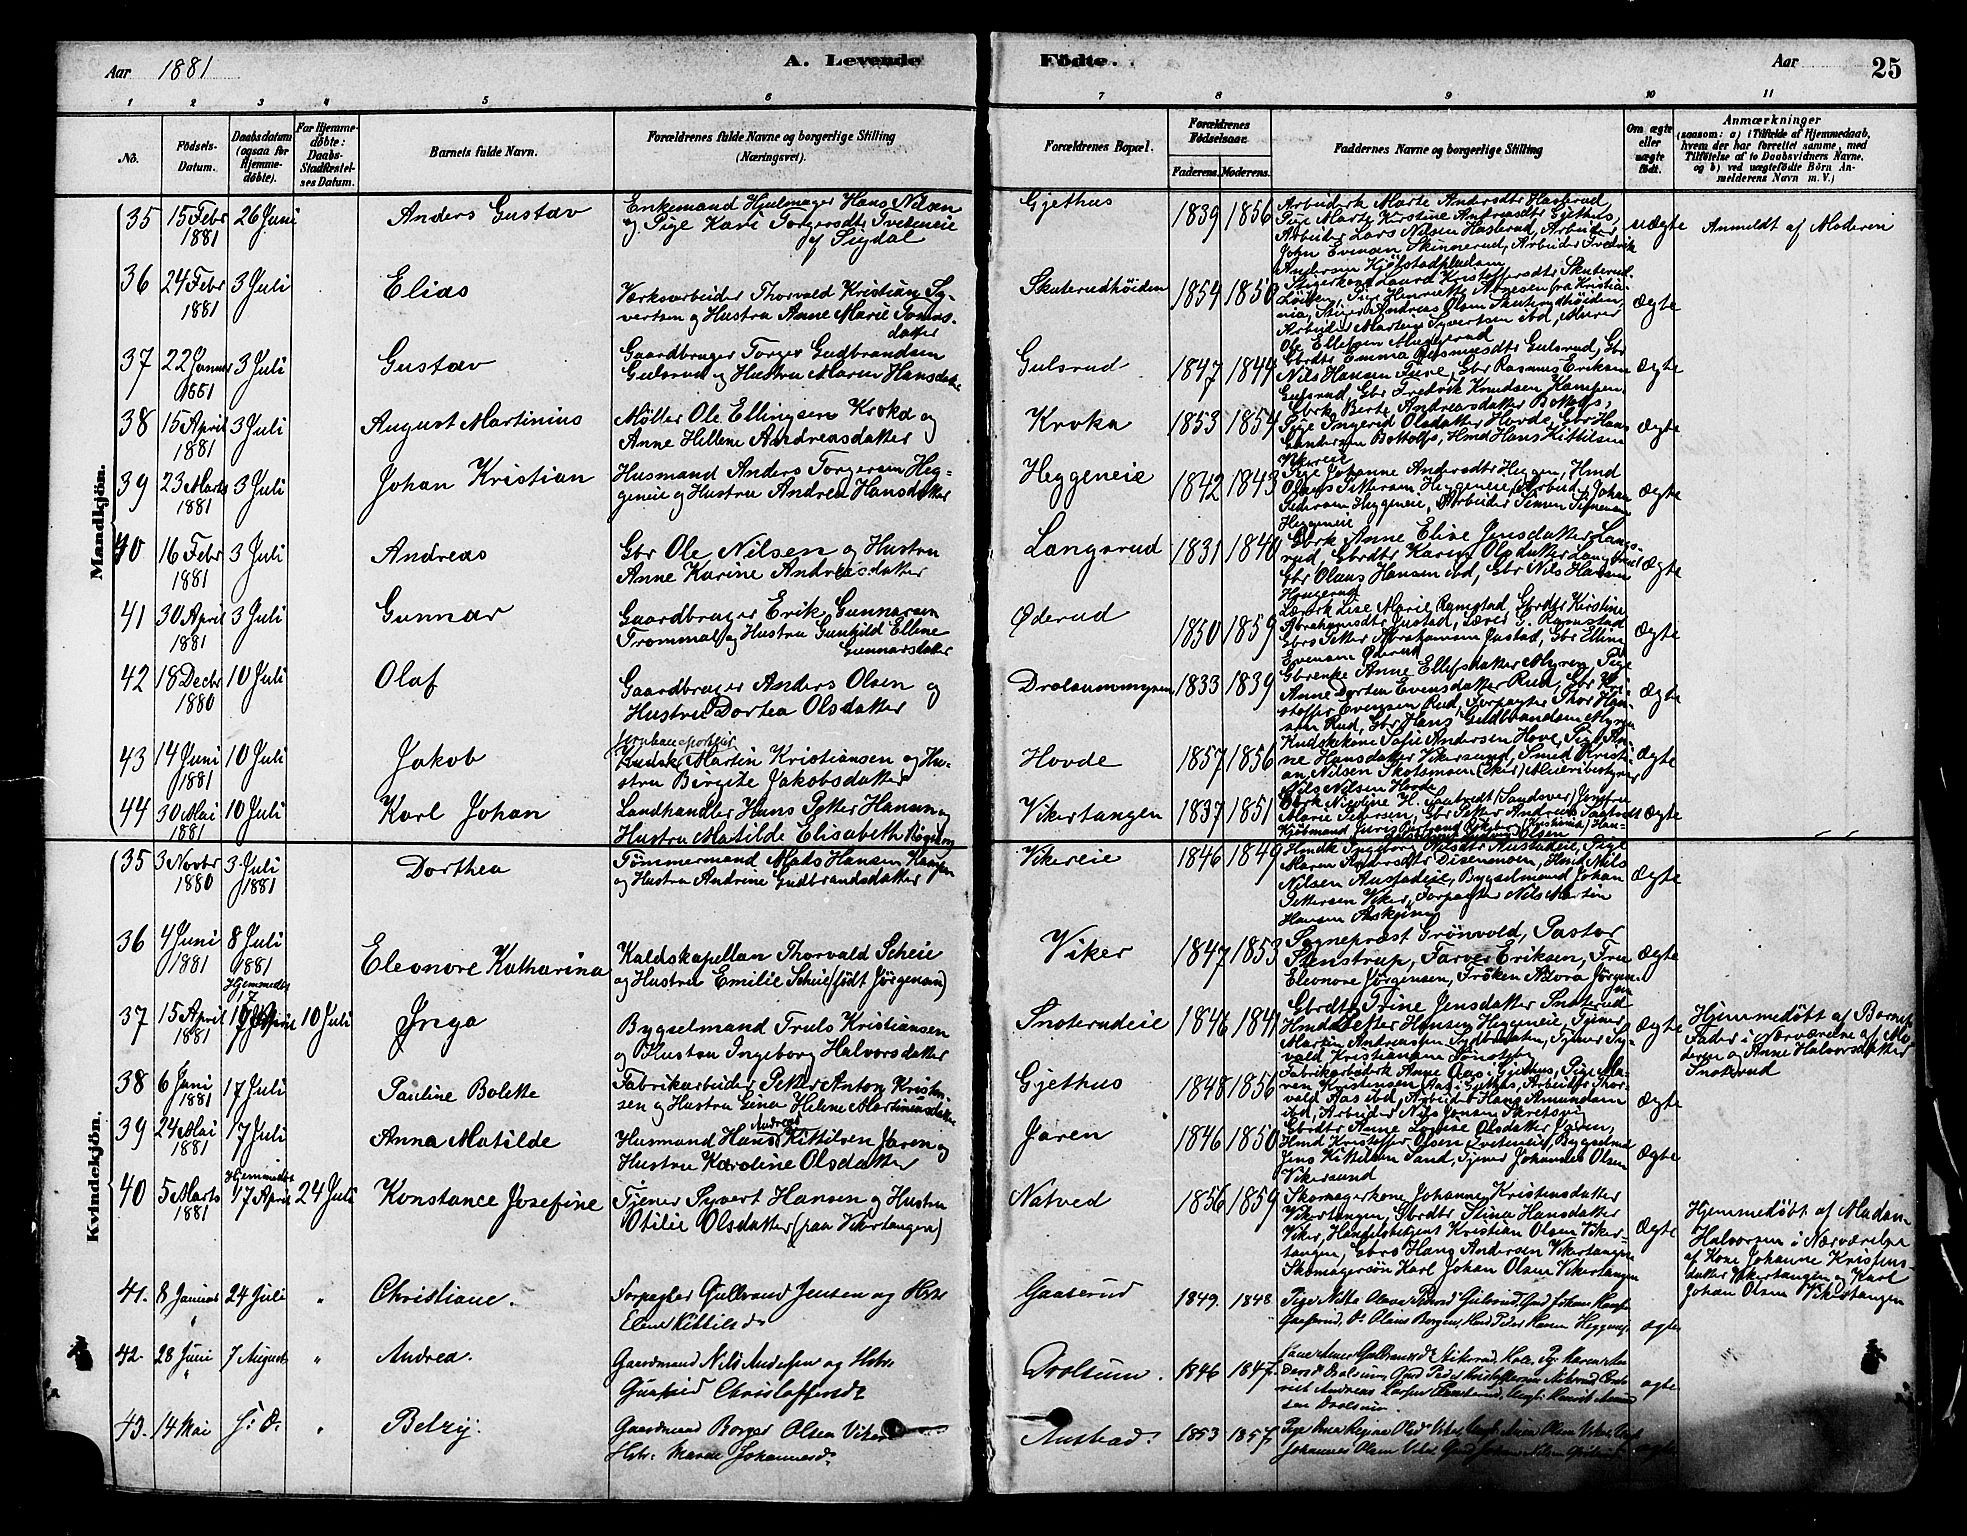 Aar 1881 A. Levende Födte. Aar 25
1 2 3 4 5 6 7 8 9 10 11
No. Födsels-Datum. Daabsdatum (ogsaa for Hjemme-döbte). For Hjemme-döbte: Daabs-Stadfæstel-ses Datum. Barnets fulde Navn. Forældrenes fulde Navne og borgerlige Stilling (Næringsvei). Forældrenes Bopæl. Forældrenes Födselsaar. Faderens. Moderens. Faddernes Navne og borgerlige Stilling Om ægte eller uægte födt. Anmærkninger (saasom: a) i Tilfælde af Hjemmedaab, hvem der har forrettet samme, med Tilföielse af to Daabsvidners Navne, og b) ved uægtefödte Börn An-melderens Navn m. V.)
Mandkjön.
35 15 Febr 1881 26 Juni Anders Gustav Enkemand Hjulmager Hans Nilsen og Pige Kari Torgersdtr Tveteneie af Sigdal Gjethus 1839 1856 Arbeiderk Marte Andrsdtr Haslerud, Pige Marte Kirstine Andreasdtr Gjethus, Arbeider Lars Nilsen Haslerud, Arbeider John Evensen Skinnerud, Arbeider Fredrik Andersen Kjölstadpladsen uægte Anmeldt af Moderen
36 24 Febr 1881 3 Juli Elias Værksarbeider Thorvald Kristian Sy-vertsen og Hustru Anne Marie Toms-datter Skuterudhöiden 1854 1850 Stigerkone Laura Kristoffersdtr Skuterud- Pige Henriette fra Kristia-nia, Stiger Andreas Olsen Skuterudhöiden, Arbeider Martin Syvertsen ibd, Murer Ole Ellefsen Muggerud Ægte
37 22 Januar 3 Juli Gustav Gaardbruger Torger Gudbrandsen Gulsrud og Hustru Maren Hansdatter Gulsrud 1847 1844 Gbrdtr Emma Rasmusdtr Gulsrud, Gbr Nils Hansen Fure, Gbr Rasmus Eriksen Gulsrud, Gbr Fredrik Knudsen Kampen Ægte
38 15 April 1881 3 Juli August Martinius Möller Ole Ellingsen Kroka og Anne Hellene Andreasdatter Kroka 1853 1854 Gbrk Berte Andreasdatter Bottolfs, Pige Ingerid Olsdatter Hovde, Gbr Hans Gundersen Bottolfs, Hmd Hans Kittilsen Vikereie Ægte
39 23 Marts 1881 3 Juli Johan Kristian Husmand Anders Torgersen Heg-geneie og Hustru Andrea Hansdatter Heggeneie 1842 1843 Pige Johanne Andersdtr Heggen, Hmd Olaus Pettersen Heggeneie, Arbeider Johan Pedersen Heggeneie, Arbeider Simen Simensen Heggeneie Ægte
40 16 Febr 1881 3 Juli Andreas Gbr Ole Nilsen og Hustru Anne Karine Andreasdatter Langsrud 1831 1840 Gbrk Anne Elise Jensdatter Langs-rud, Gbrdtr Karen Olsdatter Langsrud Gbr Olaus Hansen ibd, Gbr Nils Hansen Haugerud Ægte
41 30 April 1881 3 Juli Gunnar Gaardbruger Erik Gunnarsen Trommal og Hustru Gunhild Elline Gunnarsdatter Øderud 1850 1859 Lærerk Lise Marie Ramstad, Gbrdtr Kirstine Abrahamsdtr Justad, Lærer G. Ramstad Gbrs Petter Abrahamsen Justad, Gbr Elling Evensen Øderud Ægte
42 18 Decbr 1880 10 Juli Olaf Gaardbruger Anders Olsen og Hustru Dortea Olsdatter Drolsummyren 1833 1839 Gbrenke Anne Ellefsdatter Myren, Pige Anne Dortea Evensdatter Rud, Gbr Kri-stoffer Evensen Rud, Forpagter Thor Han-sen Rud, Gbr Hans Gudbrandsen Myren Ægte
43 14 Juni 1881 10 Juli Jakob Martin Kristiansen og Hu-stru Birgite Jakobsdatter Hovde 1857 1856 Kudskekone Sofie Andersen Hove, Pige An-ne Hansdatter Vikersund, Smed Kristi-an Nilsen Skotsmoen (Eker) Nils Nilsen Hovde Ægte
44 30 Mai 1881 10 Juli Karl Johan Landhandler Hans Petter Hansen og Hustru Matilde Elisabeth Vikertangen 1837 1851 Gbrk Nicoline H. Saatvedt (Sandsver) Jomfru Marie Petersen, Gbr Petter Andreas Saatvedt Kjöbmand (Kristiania) Olsen Ægte
Kvindekjön.
35 3 Novbr 1880 3 Juli 1881 Dorthea Tömmermand Mads Hansen Haagen og Hustru Andrine Gudbrandsdatter Vikereie 1846 1849 Hmdk Ingeborg Olsdtr Austadeie, Pige Maren Andersdtr Disenengen, Hmd Nils Nilsen Austadeie, Bygselmand Johan Pettersen Viker, Forpagter Nils Martin Hansen Askjem Ægte
36 4 Juni 1881 8 Juli 1881 Eleonore Katharina Kaldskapellan Thorvald Scheie og Hustru Emilie Scheie (födt Jörgensen) Viker 1847 1853 Sognepræst Grönvold, Pastor Stenstrup, Farver Eriksen, Fru Eleonore Jörgensen, Fröken Alvora Jörgen-sen Ægte
37 15 April 1881 Hjemmedbt 17 April 10 Juli Inga Bygselmand Truls Kristiansen og Hustru Ingeborg Halvorsdatter Snoterudeie 1846 1841 Gbrdtr Trine Jensdatter Snoterud Hmd Petter Hansen Heggeneie, Tjener Martin Andreassen Tjener Ty-vald Kristiansen Ægte Hjemmedöbt af Barnets Fader i Nærværelse af Mo-deren og Anne Halvorsdatter Snoterud
38 6 Juni 1881 17 Juli Pauline Bolette Fabrikarbeider Petter Anton Kristen-sen og Hustru Gina Helene Martinusdatter Gjethus 1848 1856 Fabrikarbdrk Anne Aas i Gjethus, Pige Ma-ren Kristensen Aas i Gjethus, Arbeider Thor-vald Aas ibd, Arbeider Hans Amundsen ibd, Arbeider Nils Jonsen Skretsvig Ægte
39 24 Mai 1881 17 Juli Anna Matilde Husmand Hans Andreas Kittilsen Jaren og Hustru Karoline Olsdatter Jaren 1846 1850 Gbrdtr Anne Lovise Olsdatter Jaren, Hmd Kristoffer Olsen Tveteneie, Bygselmd Jens Kittilsen Sand, Tjener Johannes Olsen Vikersund Ægte
40 5 Marts 1881 Hjemmedbt 17 April 24 Juli Konstance Josefine Tjener Syvert Hansen og Hustru Otilie Olsdatter (paa Vikertangen) Natved 1856 1859 Skomagerkone Johanne Kristensdatter Vikertangen, Gbrdtr Stina Hansdatter Viker, Handelsbetjent Kristian Olsen Viker-tangen, Gbrs Hans Andersen Vikertangen Skomagersön Karl Johan Olsen Vikertangen Ægte Hjemmedöbt af Madam Halvorsen i Nærværelse af Kone Johanne Kristens-datter Vikertangen og Karl Johan Olsen Vikertangen
41. 8 Januar 24 Juli " Christiane. Forpagter Gulbrand Jensen og Hstr Elene Kittilsd. Gaaserud 1849. 1848 ægte
42. 28 Juni 7 August " Andrea. Gaardmand Nils Andersen og Hstr. Gunhild Christoffersdr Drolsum. 1846 1847. ægte
43. 14 Mai S: D. " Betzy. Gaardmand Borger Olsen Viker Hstr: Maren Johannesd. Austead. 1853 1857. ægte